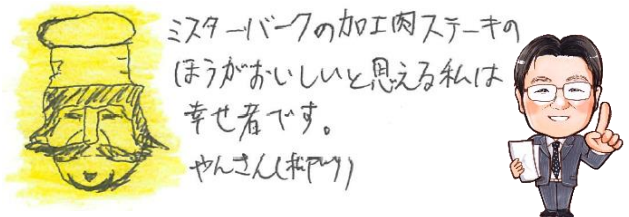 ミスターバークの加工肉ステーキの
ほうがおいしいと思える私は
幸せ者です。
やんさん